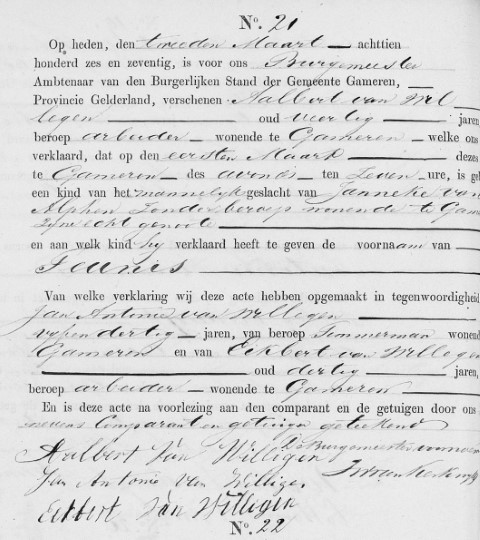 No. 21
Op heden, den tweeden Maart achttien
honderd zes en zeventig, is voor ons Burgemeester
Ambtenaar van den Burgerlijken Stand der Gemeente Gameren,
Provincie Gelderland, verschenen Aalbert van Wil
legen oud veertig jaren
beroep arbeider wonende te Gameren welke ons
verklaard, dat op den eersten Maart dezes
te Gameren des avonds ten zeven ure, is geb
een kind van het mannelijk geslacht van Janneke van
Alphen zonder beroep wonende te Game
zijne echtgenoote
en aan welk kind hij verklaard heeft te geven de voornaam van
Teunis
Van welke verklaring wij deze acte hebben opgemaakt in tegenwoordigheid
Jan Antonie van Willegen
vijfendertig jaren, van beroep Timmerman wonend
Gameren en van Eikbert van Willegen
oud dertig jaren,
beroep arbeider wonende te Gameren
En is deze acte na voorlezing aan den comparant en de getuigen door ons
nevens Comparant en getuigen geteekend
Aalbert Van Willigen De Burgemeester voornoemd
Jan Antonie Van Willigen
Eikbert Van Willigen
No. 22